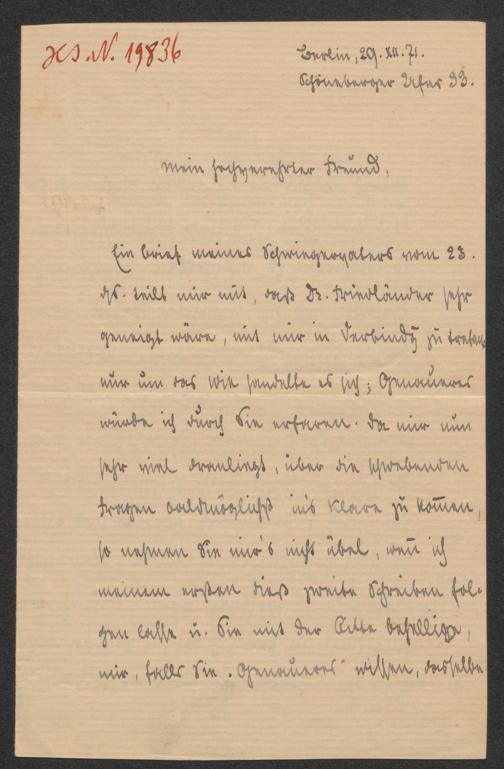 H.I.N. 19836
Berlin, 29. XII. 71.
Schöneberger Ufer 33.
Mein hochverehrter Freund,
Ein Brief meines Schwiegervaters vom 23.
ds. teilt mir mit, daß Dr. Friedländer sehr
geneigt wäre, mit mir in Verbindg zu treten
nur um das Wie handelte es sich; Genaueres
würde ich durch Sie erfaren. Da mir nun
sehr viel dranliegt, über die schwebenden
Fragen baldmöglichst in's Klare zu kom̄en,
so nehmen Sie mir's nicht übel, wen̄ ich
meinem ersten dieß zweite Schreiben fol-
gen lasse u. Sie mit der Bitte behellige,
mir, falls Sie „Genaueres“ wissen, dasselbe